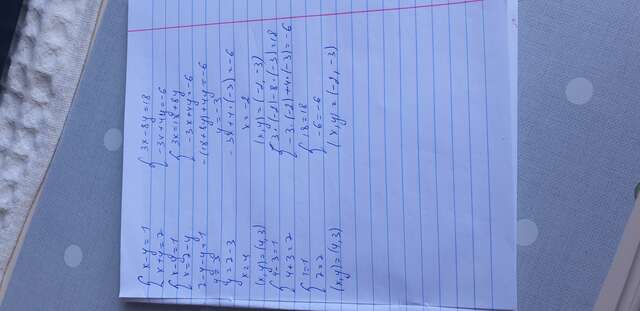 x-y=1
x+y=7
x-y=1
x=7-y
7-y-y=1
y=3
x=7-3
x=4
(x,y)=(4,3)
4-3=1
4+3=7
1=1
7=7
(x,y)=(4,3)
3x-8y=18
-3x+4y=-6
3x=18+8y
-3x+4y=-6
-(18+8y)+4y=-6
y=-3
-3x+4·(-3)=-6
x=-2
(x,y)=(-2,-3)
3·(-2)-8·(-3)=18
-3·(-2)+4·(-3)=-6
18=18
-6=-6
(x,y)=(-2,-3)